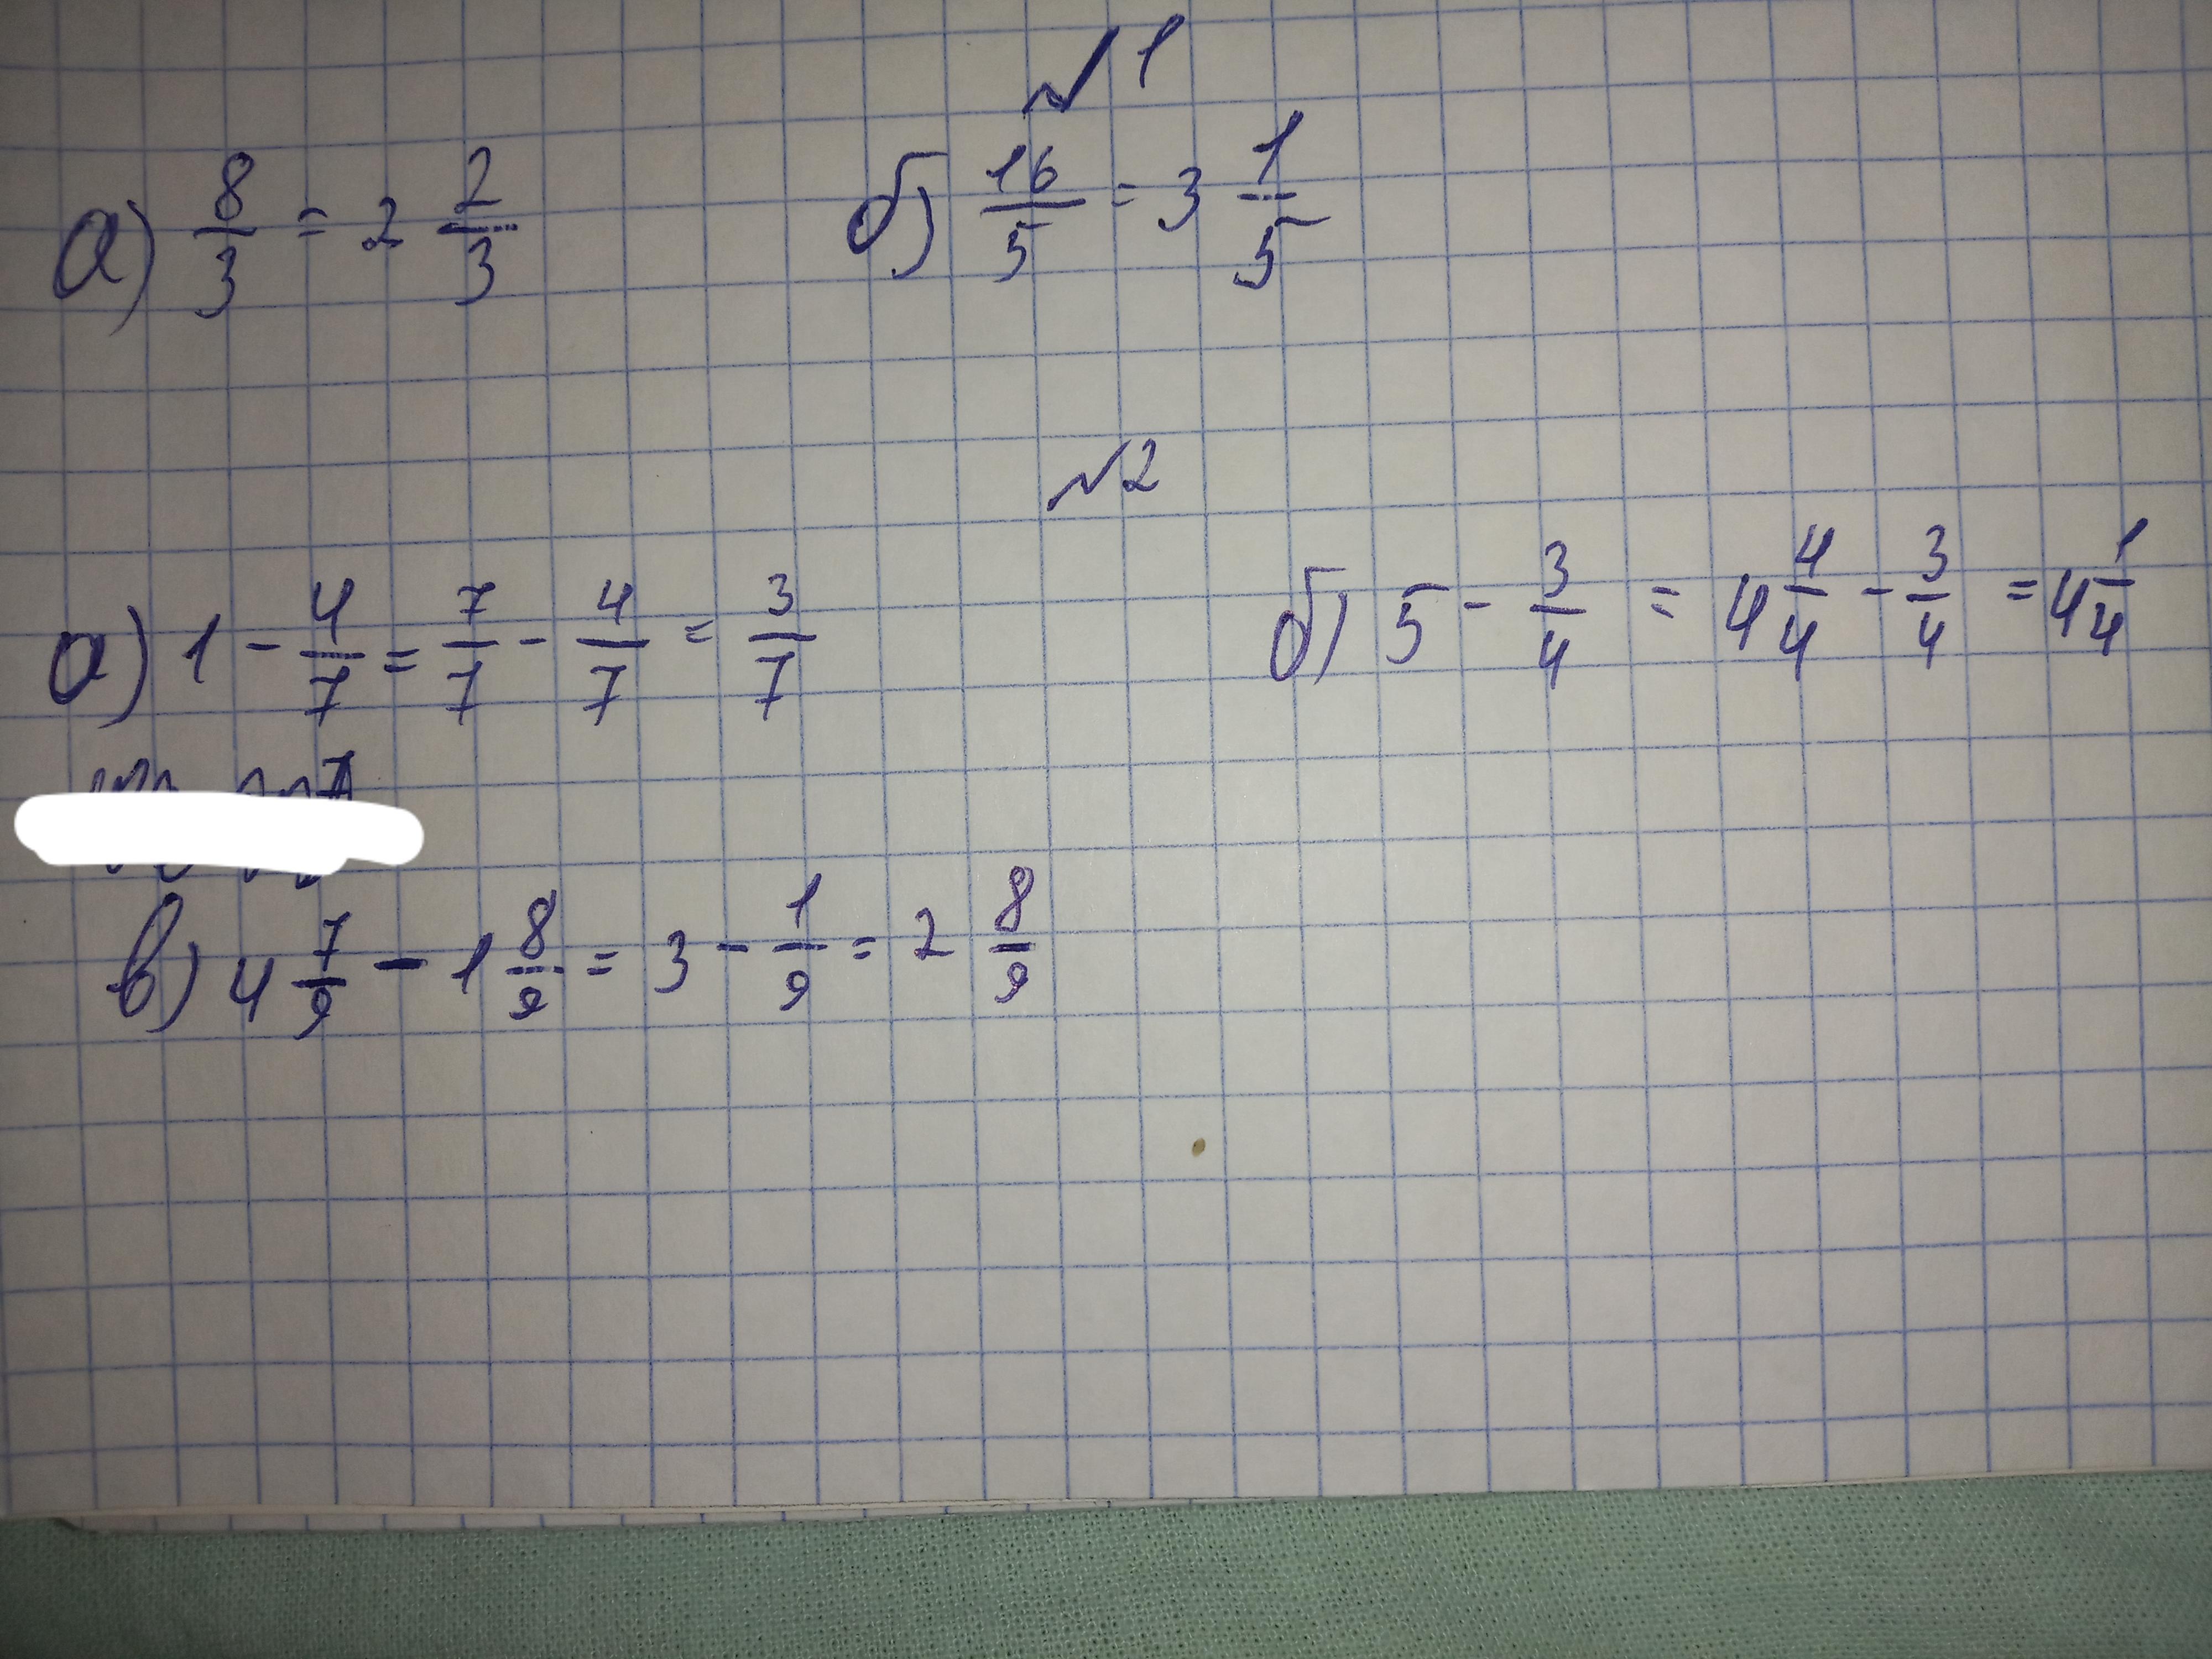 №1
а) 8/3 = 2 2/3 б) 16/5 = 3 1/5
№2
а) 1 - 4/7 = 7/7 - 4/7 = 3/7 б) 5 - 3/4 = 4 4/4 - 3/4 = 4 1/4
в) 4 7/9 - 1 8/9 = 3 - 1/9 = 2 8/9